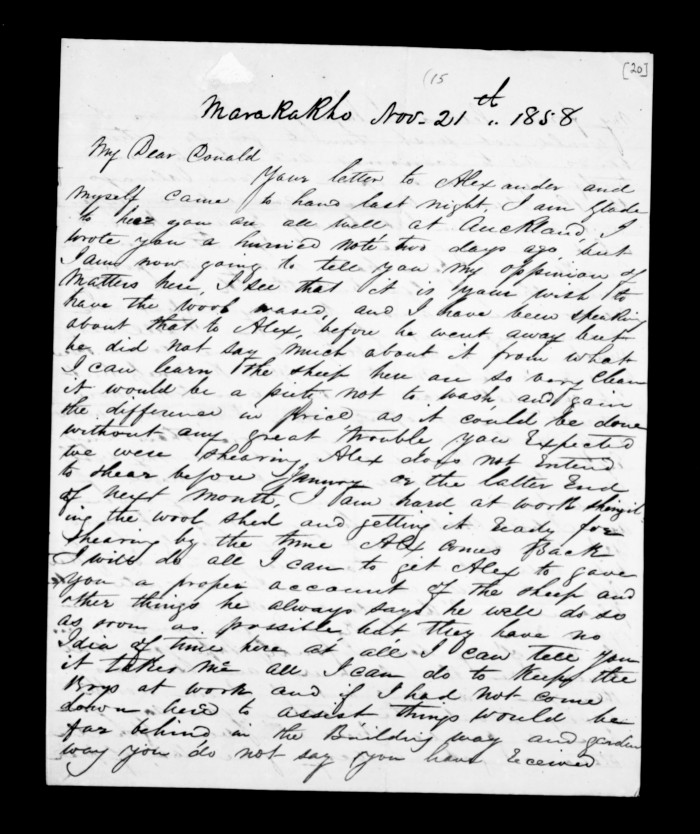 [20]
(15
Marakakho Nov. 21th .. 1858
My Dear Donald
Your letter to Alexander and
myself came to hand last night I am glade
to hear you are all well at Auckland, I
wrote you a hurried note two days ago, but
I am now going to tell you my oppinion of
Matters here, I see that it is your wish to
have the wool wased, and I have been speaking
about that to Alex, before he went away but
he did not say much about it from what
I can learn & the sheep here are so very clean
it would be a pity not to wash, and gain
the difference in price as it could be done
without any great trouble you Expected
we were shearing Alex does not Entend
to shear before January or the latter End
of next month, I am hard at work shingil
ing the wool shed and getting it ready for
shearing by the time Alex comes Back
I will do all I can to get Alex to gave
you a proper account of the sheep and
other things he always says he well do so
as soon as possible, but they have no
Idia of time here at all I can tell you
it takes me all I can do to keep the
Boys at work and if I had not come
down here to assist things would be
far behind in the Building way and garden
way you do not say you have received